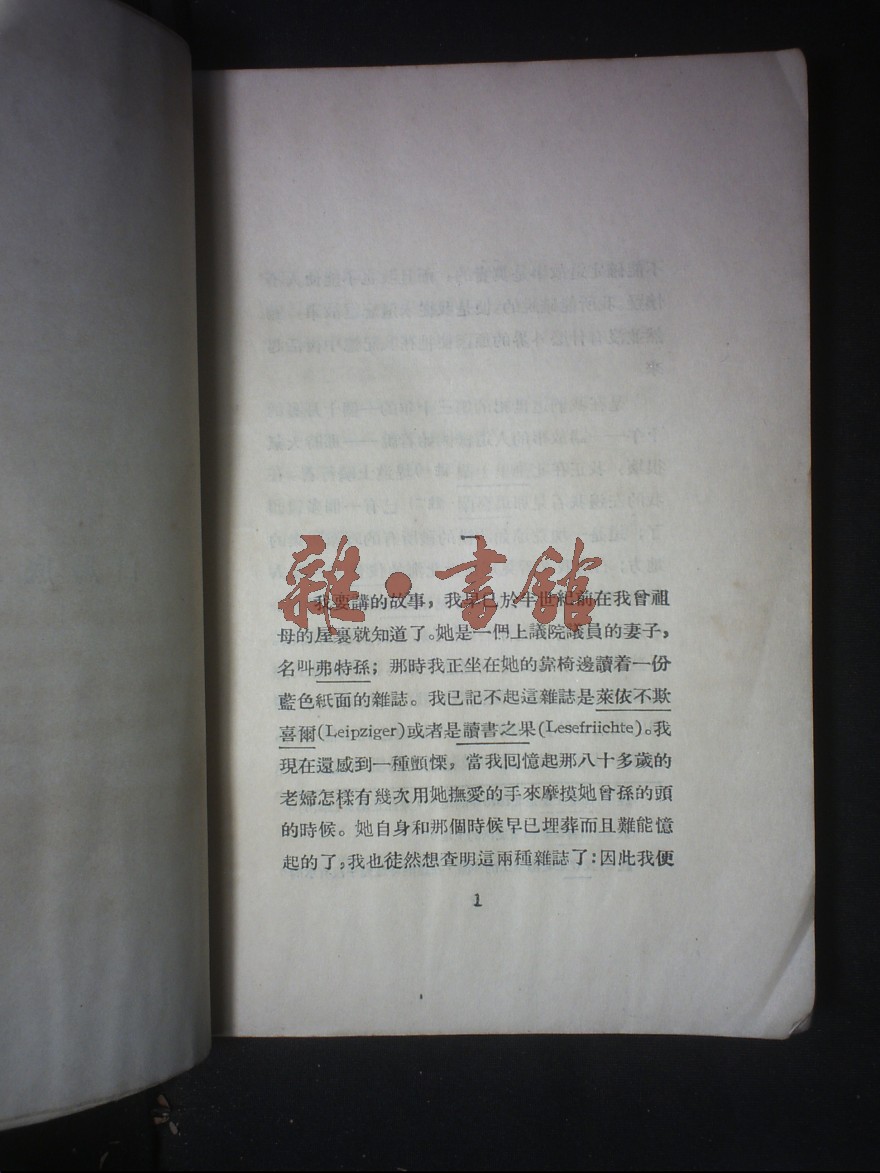 一
雜·書館
我要講的故事，我早已於半世紀前在我曾祖
母的屋裏就知道了。她是一個上議院議員的妻子，
名叫弗特孫；那時我正坐在她的靠椅邊讀着一份
藍色紙面的雜誌。我已記不起這雜誌是萊依不欺
喜爾(Leipziger)或者是讀書之果(Lesefriichte)。我
現在還感到一種顫慄，當我回憶起那八十多歲的
老婦怎樣有幾次用她撫愛的手來摩摸她曾孫的頭
的時候。她自身和那個時候早已埋葬而且難能憶
起的了，我也徒然想查明這兩種雜誌了：因此我便
1